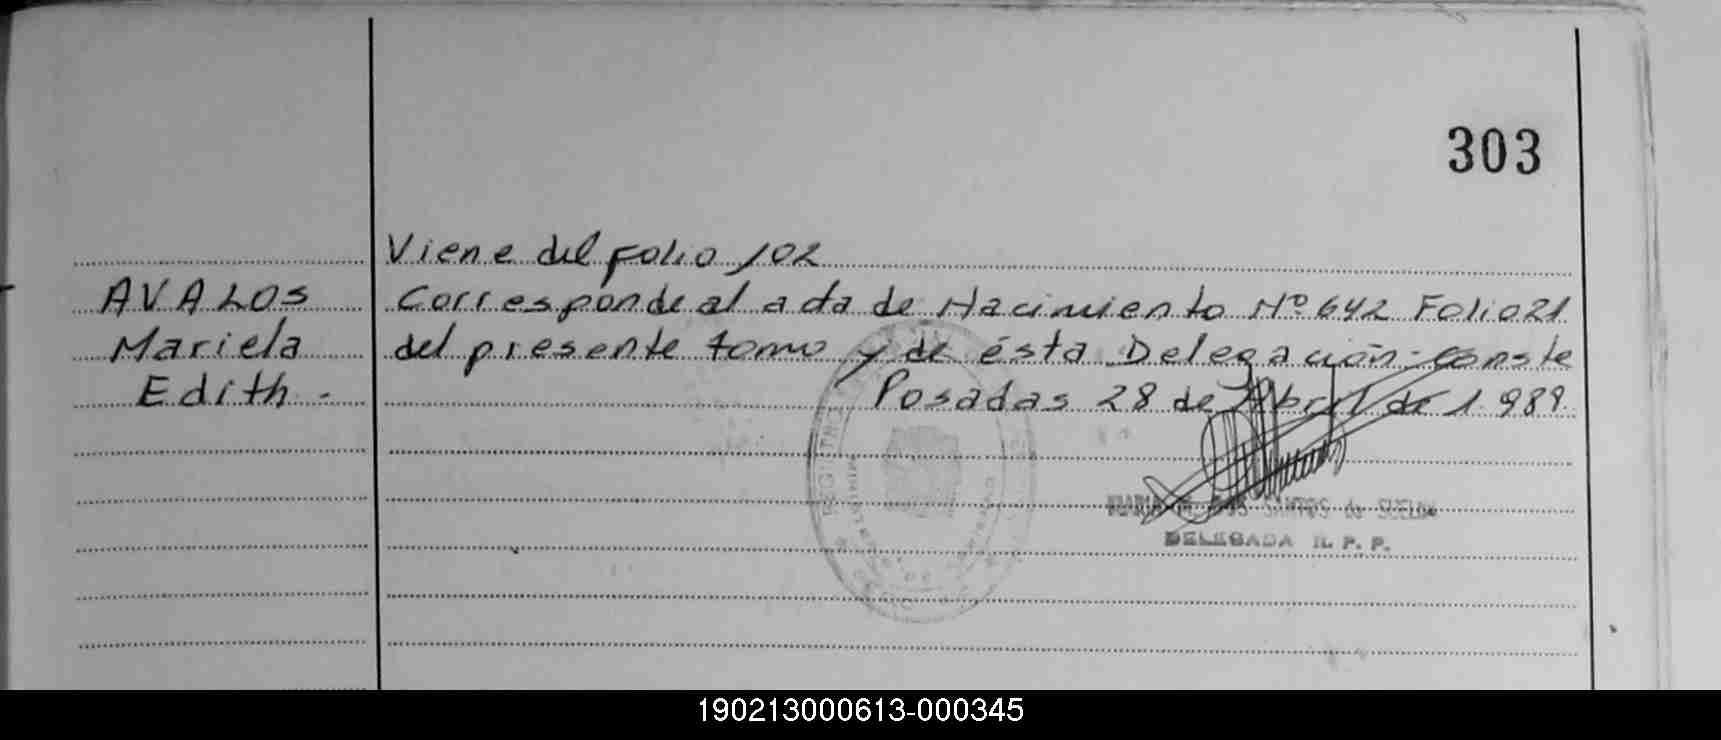 303
Viene del folio 102
AVALOS
Mariela
Edith.-
Corresponde al acta de Nacimiento Nº 642 Folio 21
del presente tomo y de ésta Delegación.- conste
Posadas 28 de Abril de 1989
SANTOS de
DELEGADA R. P. P.
190213000613-000345